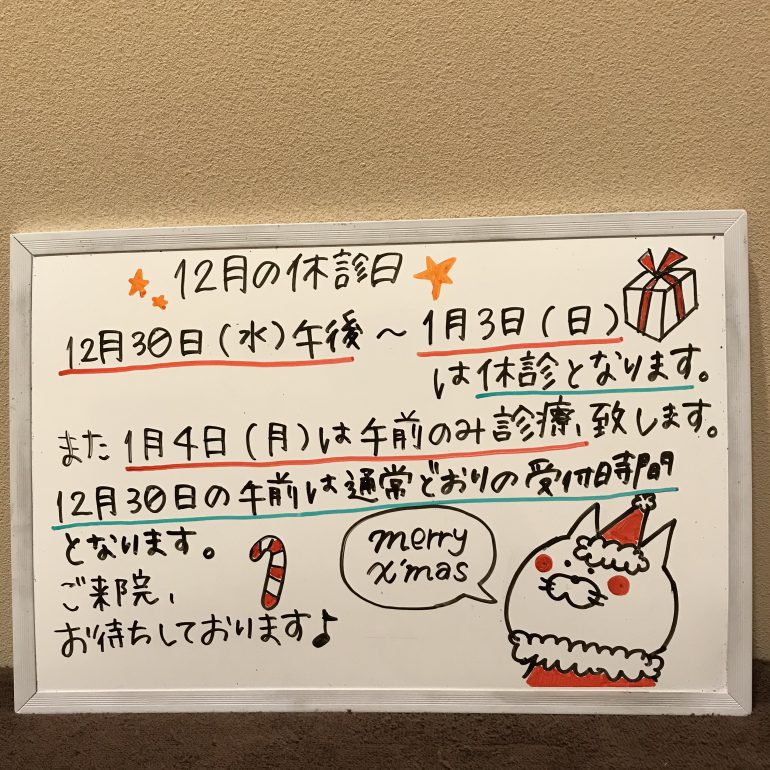 12月の休診日
12月30日(水)午後 ～ 1月3日(日)
は休診となります。
また 1月4日(月)は午前のみ診療、致します。
12月30日の午前は通常どおりの受付時間
となります。
ご来院、
お待ちしております♪
merry
x'mas